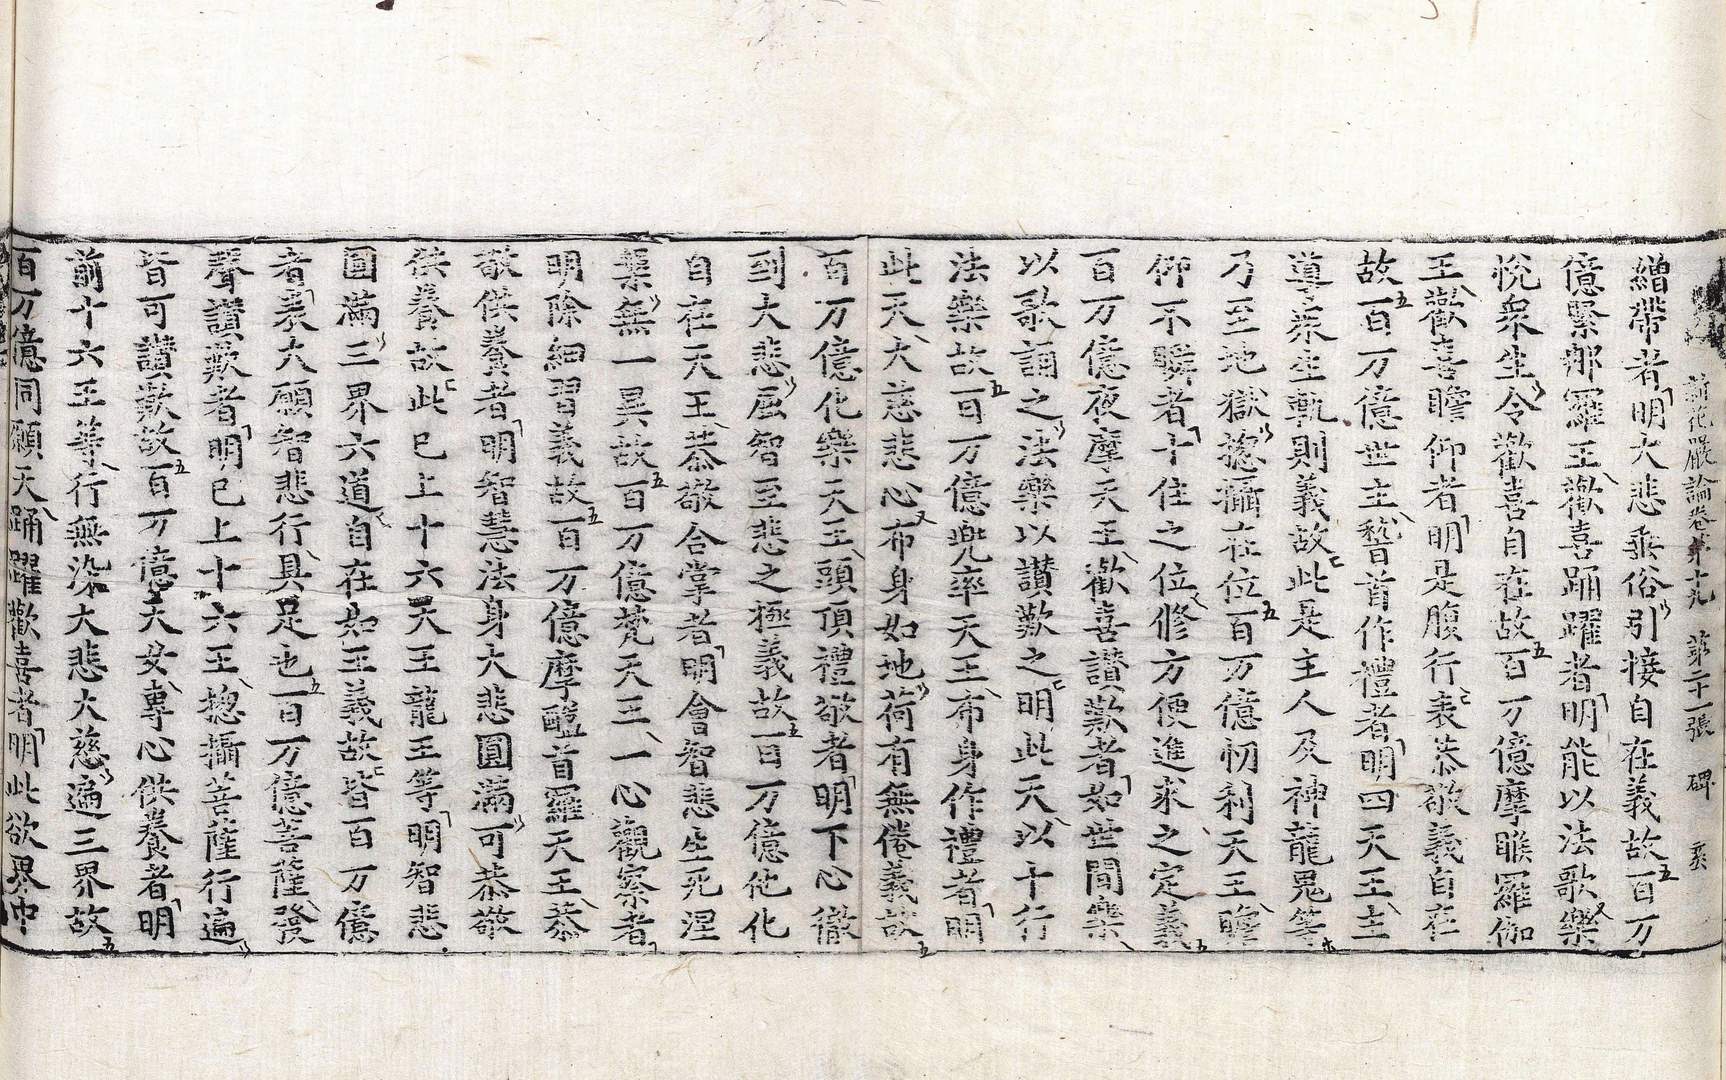 新花嚴論卷第十九 第二十一張 碑
繒帶者明大悲垂俗引接自在義故百万
億緊那羅王歡喜踊躍者明能以法歌樂
悅衆生令歡喜自在故百万億摩睺羅伽
王歡喜瞻仰者明是腹行表恭敬義自在
故百万億世主稽首作禮者明四天王主
導衆生軌則義故此是主人及神龍鬼等
乃至地獄揔攝在位百万億忉利天王瞻
仰不瞬者十住之位修方便進求之定義
百万億夜摩天王歡喜讃歎者如世間樂
以歌誦之法樂以讃歎之明此天以十行
法樂故百万億兜率天王布身作禮者明
此天大慈悲心布身如地荷有無倦義故
百万億化樂天王頭頂禮敬者明下心徹
到大悲屈智至悲之極義故百万億他化
自在天王恭敬合掌者明會智悲生死涅
槃無一異故百万億梵天王一心觀察者
明除細習義故百万億摩醯首羅天王恭
敬供養者明智慧法身大悲圓滿可恭敬
供養故此已上十六天王龍王等明智悲
圓滿三界六道自在如王義故皆百万億
者表大願智悲行具足也百万億菩薩發
聲讃歎者明已上十六王揔攝菩薩行遍
皆可讃歎故百万億天女專心供養者明
前十六王等行無染大悲大慈遍三界故
百万億同願天踊躍歡喜者明此欲界中